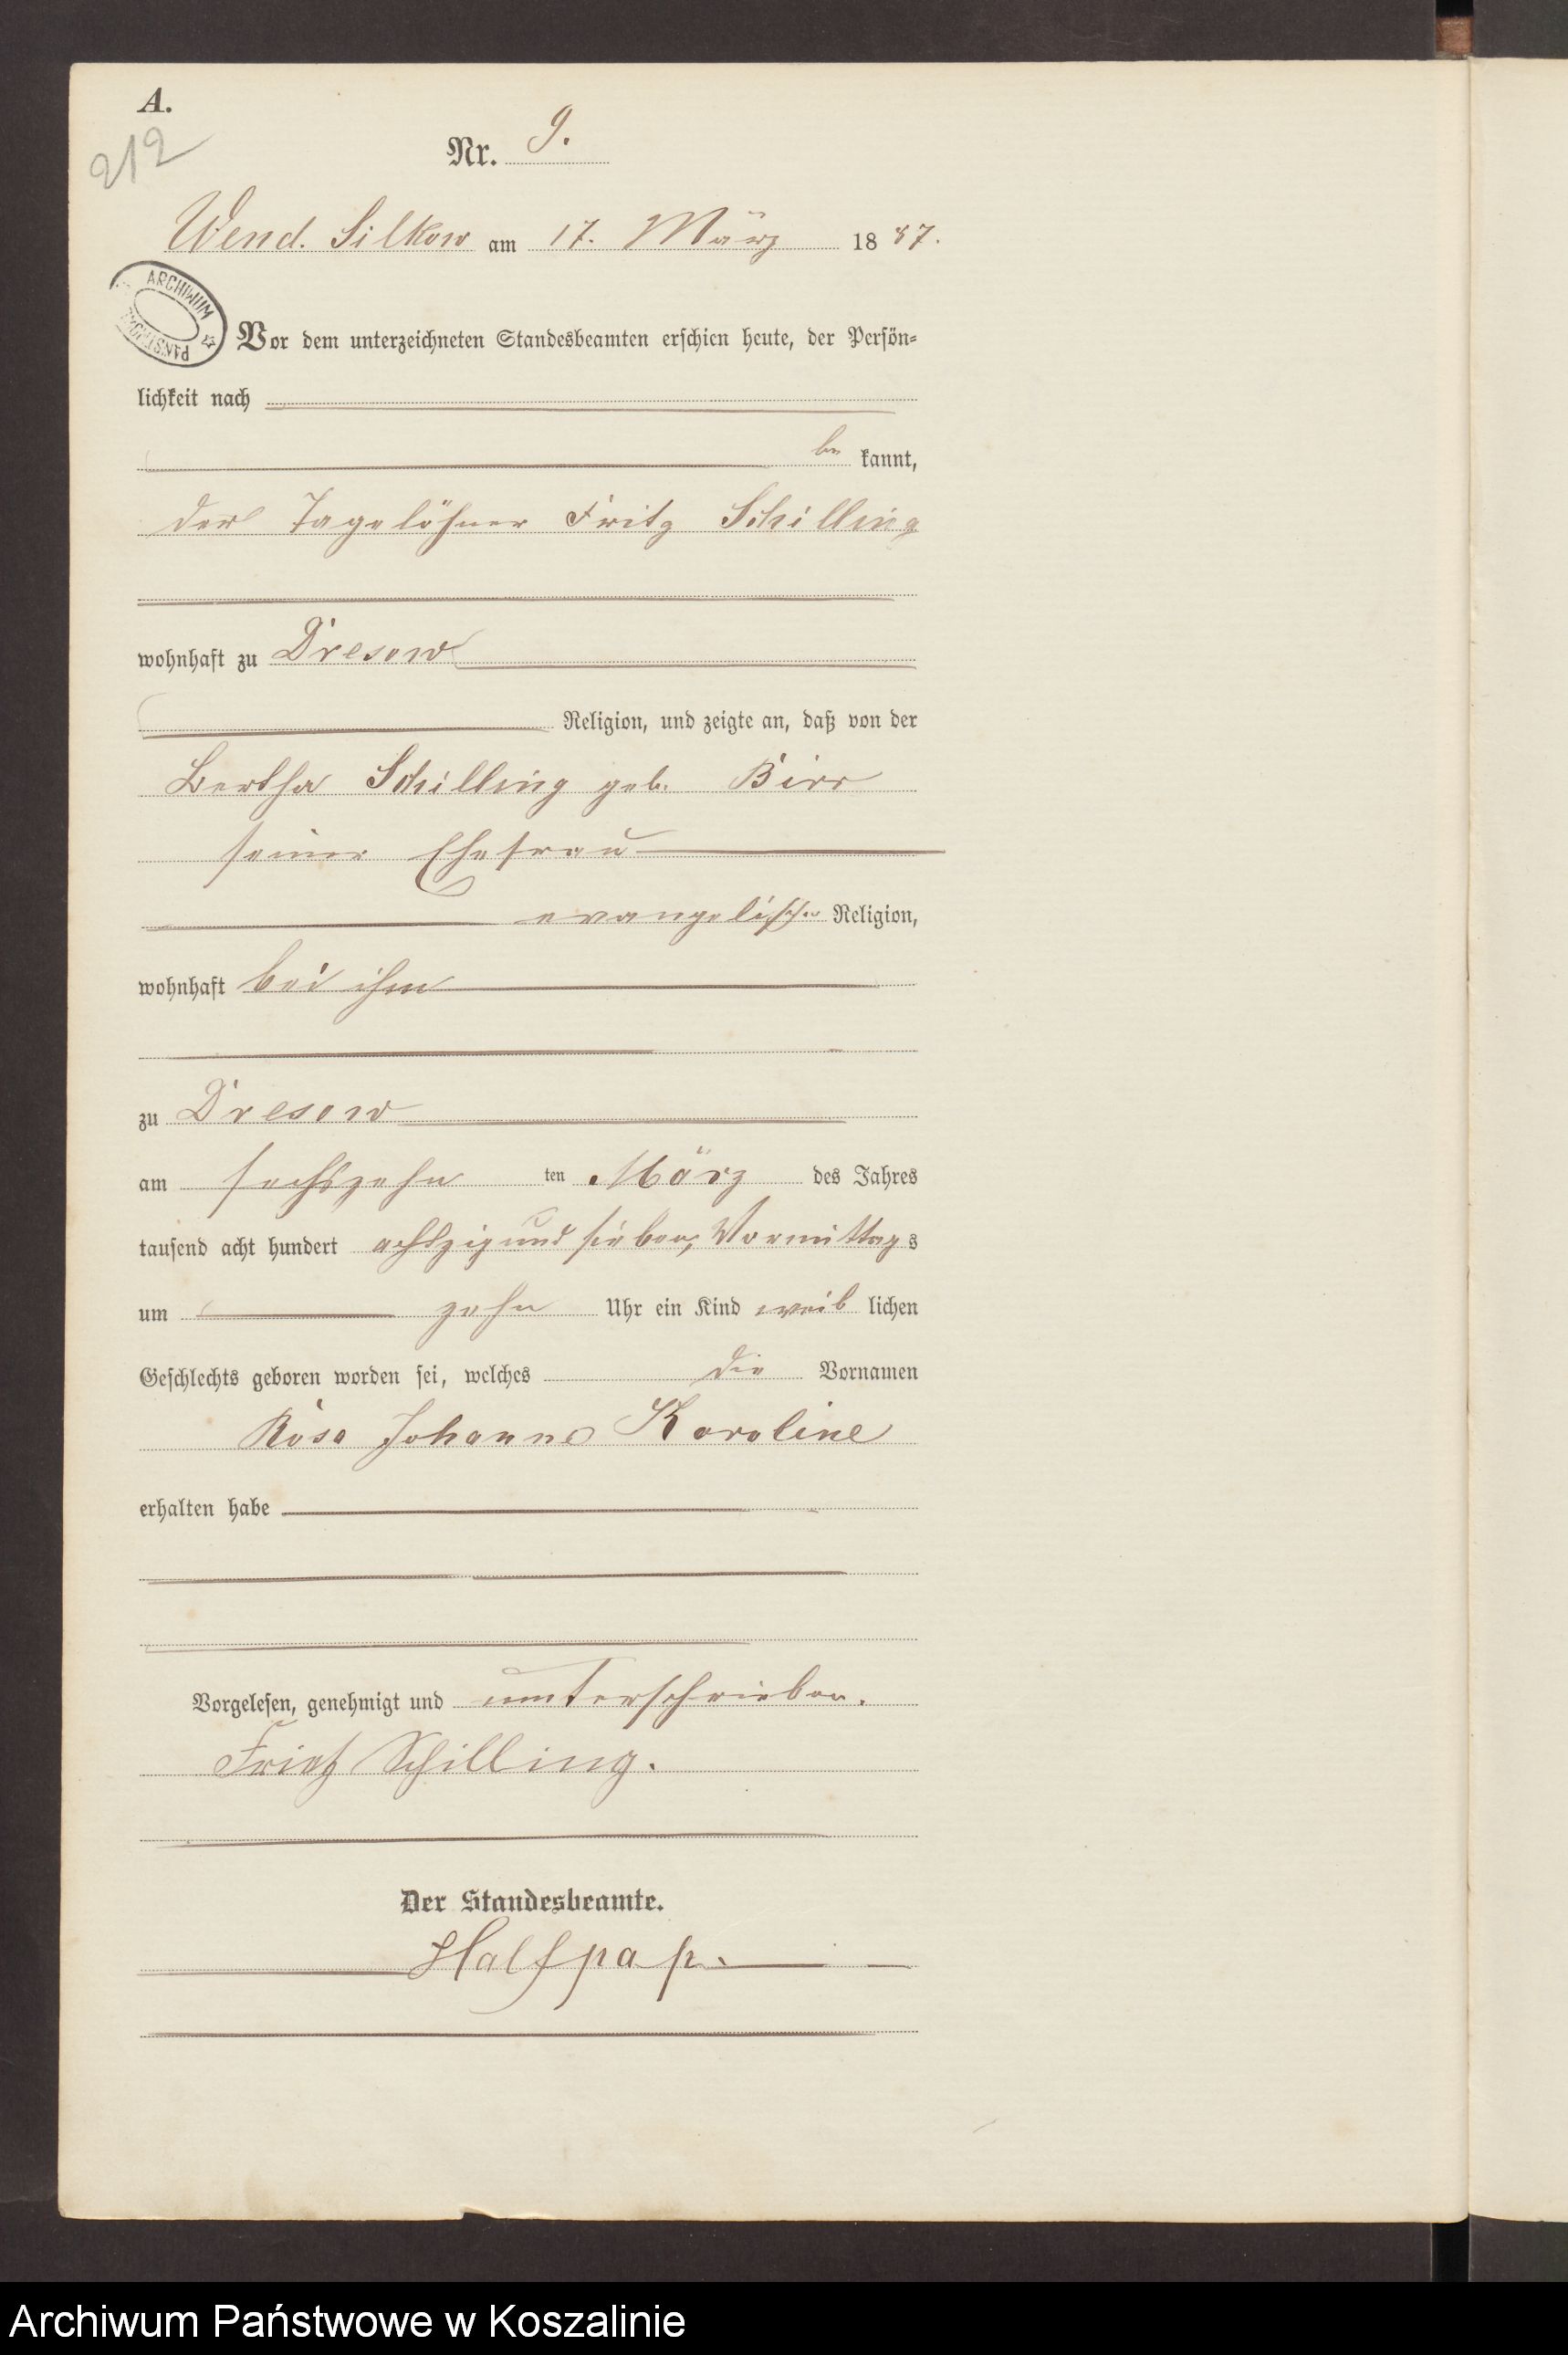 A.
212
Nr. 9.
Wend. Silkow am 17. März 1887.
ARCHIWUM PAŃSTWOWE
Vor dem unterzeichneten Standesbeamten erschien heute, der Persön-
lichkeit nach
be kannt,
der Tagelöhner Fritz Schilling
wohnhaft zu Dresow
Religion, und zeigte an, daß von der
Bertha Schilling geb. Birr
seiner Ehefrau
evangelischer Religion,
wohnhaft bei ihm
zu Dresow
am sechszehn ten März des Jahres
tausend acht hundert achtzig und sieben, Vormittags
um zehn Uhr ein Kind weiblichen
Geschlechts geboren worden sei, welches die Vornamen
Rosa Johanne Karoline
erhalten habe
Vorgelesen, genehmigt und unterschrieben.
Frietz Schilling.
Der Standesbeamte.
Halfpap.
Archiwum Państwowe w Koszalinie